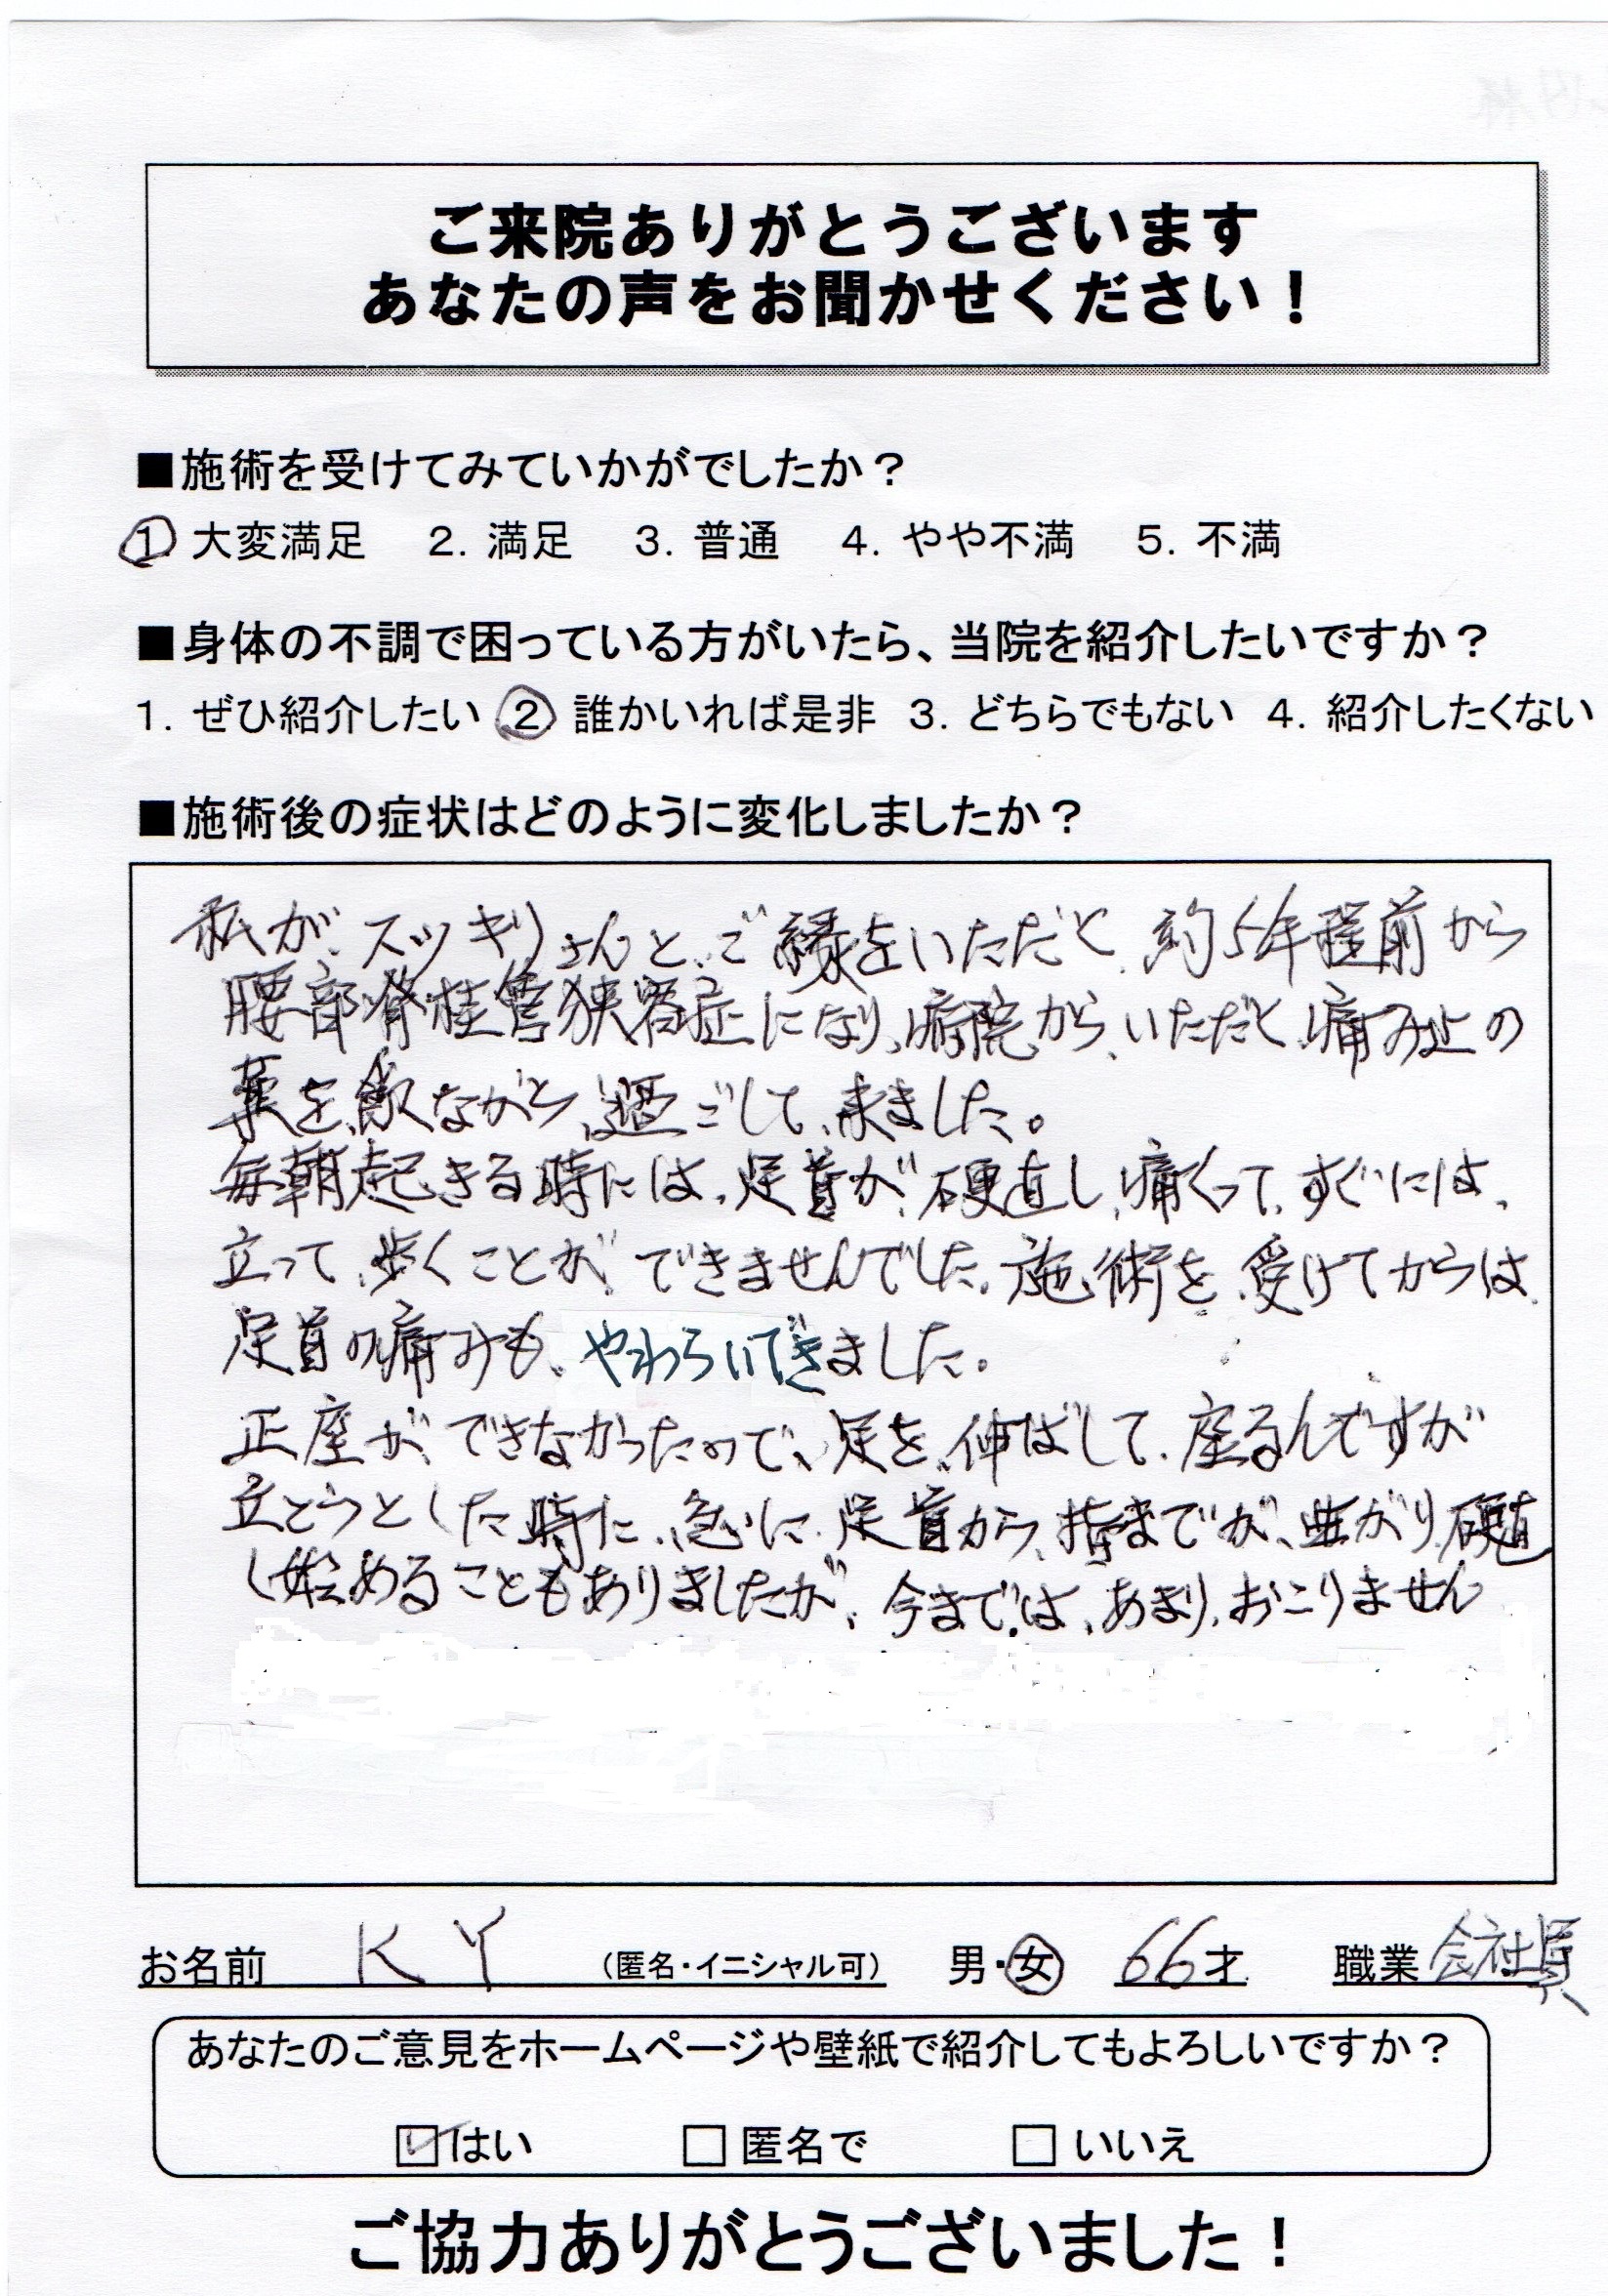 ご来院ありがとうございます
あなたの声をお聞かせください！
■施術を受けてみていかがでしたか？
1. 大変満足 2. 満足 3. 普通 4. やや不満 5. 不満
■身体の不調で困っている方がいたら、当院を紹介したいですか？
1. ぜひ紹介したい 2 誰かいれば是非 3. どちらでもない 4. 紹介したくない
■施術後の症状はどのように変化しましたか？
私が、スッキリさんと、ご縁をいただき、約5年程前から
腰部脊柱管狭窄症になり、病院から、いただく、痛み止の
薬を、飲ながら、過ごして、来ました。
毎朝起きる時には、足首が、硬直し、痛くって、すぐには、
立って、歩くことが、できませんでした。施術を、受けてからは、
足首の痛みも、やわらいできました。
正座が、できなかったので、足を、伸ばして、座るんですが
立とうとした時に、急に、足首から、指までが、曲がり、硬直
し始めることもありましたが、今までは、あまり、おこりません
お名前 K Y （匿名・イニシャル可） 男・女 66才 職業 会社員
あなたのご意見をホームページや壁紙で紹介してもよろしいですか？
☑はい □匿名で □いいえ
ご協力ありがとうございました！